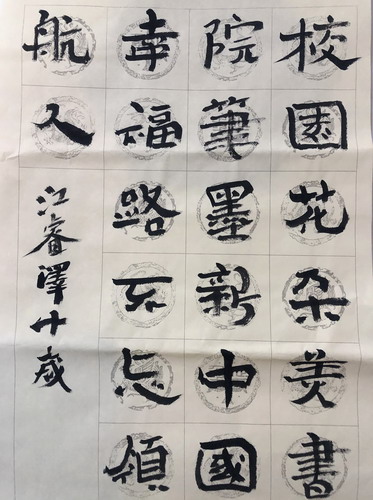 校園花朵美書
院筆墨新中國
幸福路不忘領
航人
江睿澤十歲